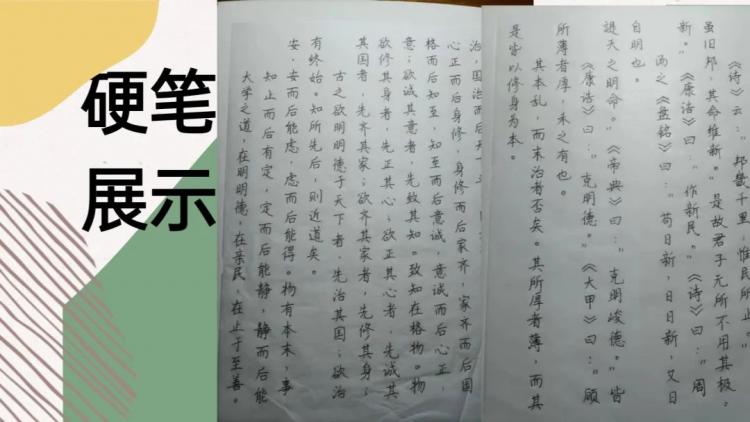 硬笔
展示
大学之道，在明明德，在亲民，在止于至善。
知止而后有定，定而后能静，静而后能
安，安而后能虑，虑而后能得。物有本末，事
有终始。知所先后，则近道矣。
古之欲明明德于天下者，先治其国；欲治
其国者，先齐其家；欲齐其家者，先修其身；
欲修其身者，先正其心；欲正其心者，先诚其
意；欲诚其意者，先致其知。致知在格物。物
格而后知至，知至而后意诚，意诚而后心正，
心正而后身修，身修而后家齐，家齐而后国
治，国治而后天
是皆以修身为本。
其本乱，而末治者否矣。其所厚者薄，而其
所薄者厚，未之有也。
《康诰》曰：“克明德。”《大甲》曰：“顾
諟天之明命。”《帝典》曰：“克明峻德。”皆
自明也。
汤之《盘铭》曰：“苟日新，日日新，又日
新。”《康诰》曰：“作新民。”《诗》曰：“周
虽旧邦，其命维新。”是故君子无所不用其极。
《诗》云：“邦畿千里，惟民所止。”